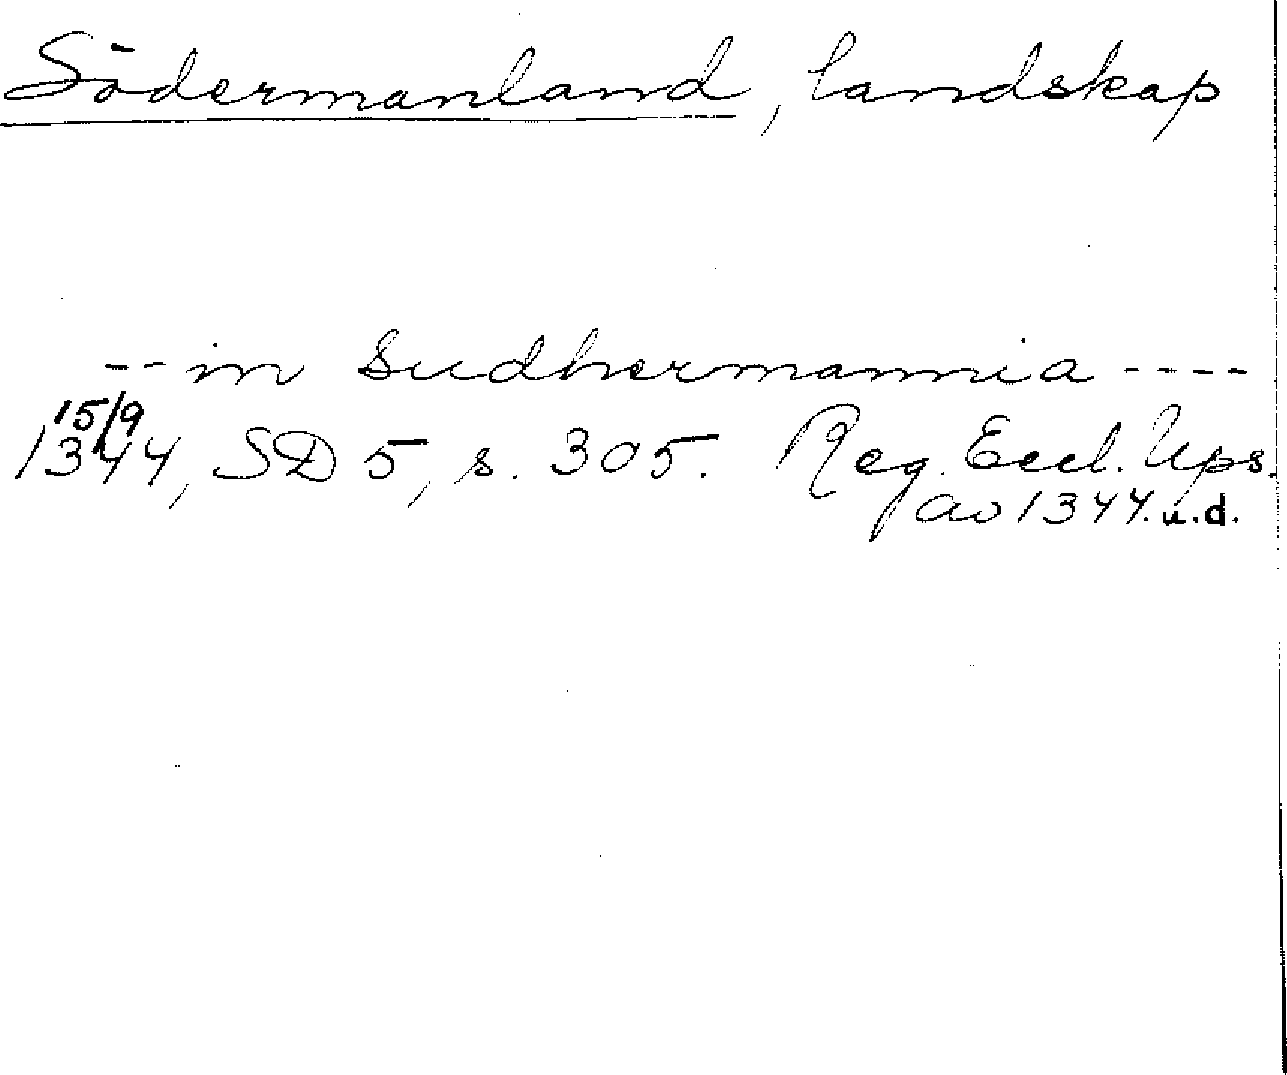 Södermanland, landskap
-- in Sudhermannia ----
15/9
1344, SD 5, s. 305. Reg. Eccl. Ups.
av 1344. u.d.